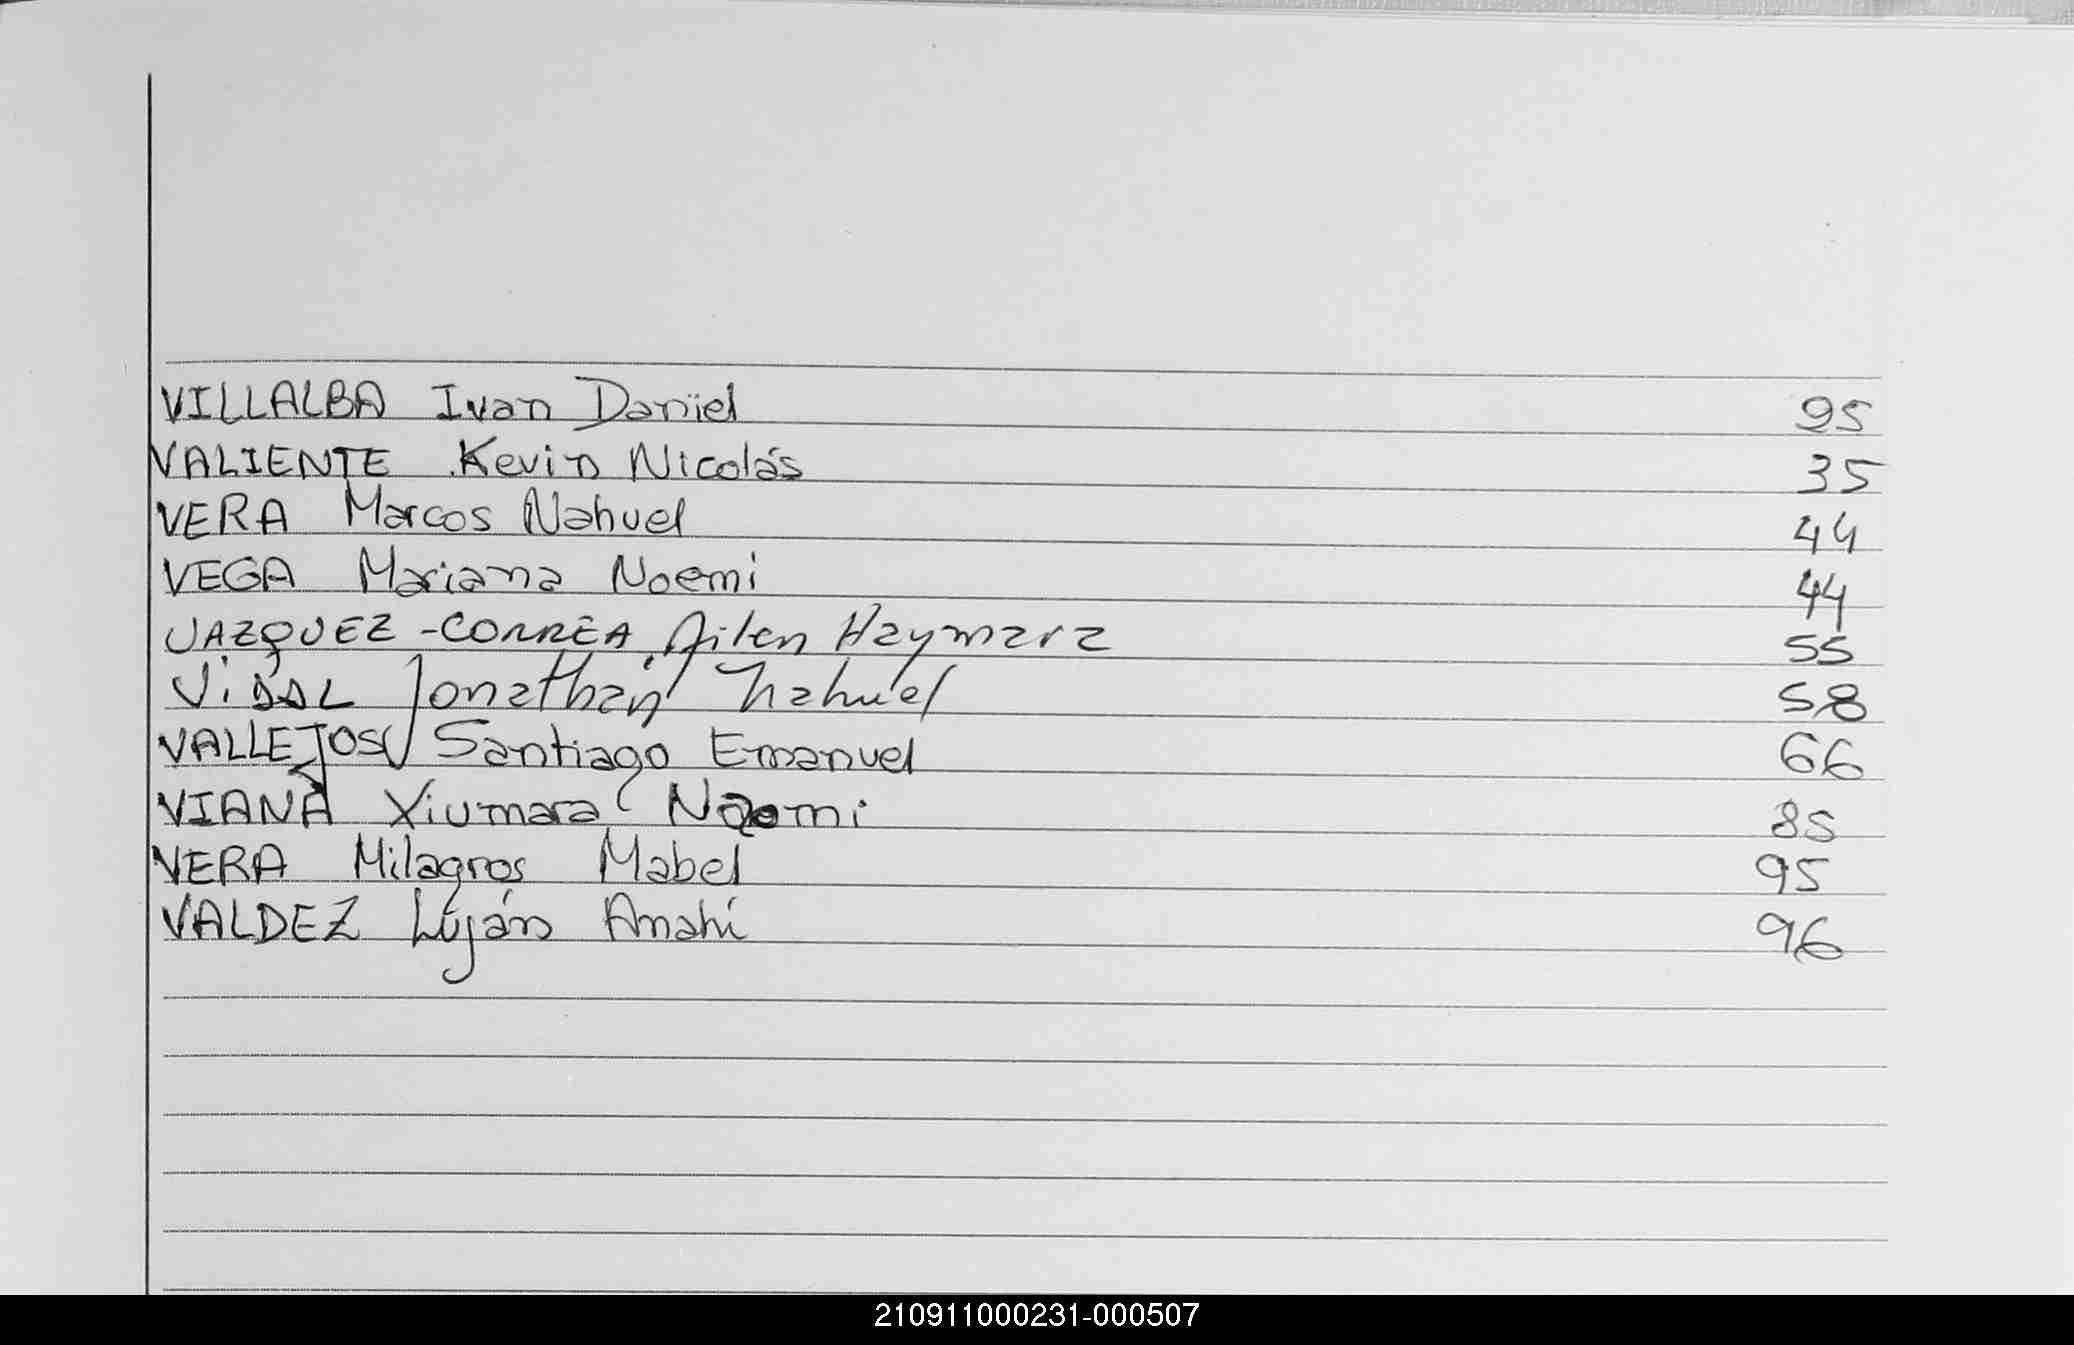 VILLALBA Ivan Daniel 95
VALIENTE Kevin Nicolás 35
VERA Marcos Nahuel 44
VEGA Mariana Noemi 44
VAZQUEZ-CORREA, Ailen Haymara 55
ViDAL Jonathan Nahuel 58
VALLEJOS Santiago Emanuel 66
VIANA Xiumara Naomi 85
VERA Milagros Mabel 95
VALDEZ Luján Anahí 96
210911000231-000507